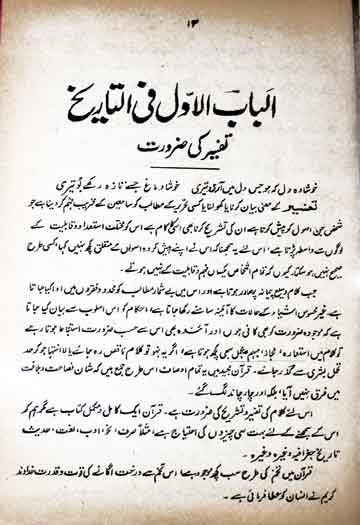 ۱۳
الباب الاوّل فی التاریخ
تفسیر کی ضرورت
خوشادہ دل کہ ہو جس دل میں آرزو تیری خوشا دماغ جسے تازہ رکھے بُو تیری
تفسیر کے معنی بیان کرنا یا کھولنا یا کسی تحریر کے مطالب کو سامعین کے قریب فہم کر دینا ہے جو
شخص جن اصول کو پیش کرتا ہے ان کی تشریح کرنا بھی اسی کا کام ہے اس کو مختلف استعداد و قابلیت کے
لوگوں سے واسطہ پڑتا ہے، اس لئے یہ سمجھنا کہ اس نے اپنے پیش کردہ اصولوں کے متعلق کچھ نہیں کہا، کسی طرح
صحیح نہیں ہو سکتا، کیوں کہ تمام اشخاص یکساں فہم و قابلیت کے نہیں ہوتے۔
جب کلام وسیع پیمانہ پر صادر ہوتا ہے اور اس میں بے شمار مطالب کو محدود فقروں میں ادا کیا جاتا
ہے۔ غیر محسوس اشیاء کے حالات کو آئینہ سامنے رکھا جاتا ہے، احکام کو اس اسلوب سے بیان کیا جاتا
ہے کہ موجودہ ضرورت کو بھی کافی ہوں اور آئندہ بھی اس سے حسب ضرورت استنباط ہوتا رہے
تو کلام میں استعارہ، مجاز، مبہم، مجمل سبھی کچھ ہوتا ہے، اگر یہ نہ ہو تو کلام ناقص رہ جائے یا لا انتہا ہو کر حد
تحمل بشری سے گذر جائے۔ قرآن مجید میں یہ تمام اوصاف اس طرح جمع ہیں کہ شان فصاحت و بلاغت
میں فرق نہیں آیا، بلکہ اور چار چاند لگ گئے۔
اس لئے کلام کی تفسیر و تشریح کی ضرورت ہے۔ قرآن ایک کامل و مکمل کتاب ہے مگر ہم کو
اس کے سمجھنے کے لئے بہت سی چیزوں کی احتیاج ہے، مثلاً صرف، نحو، ادب، لغت، حدیث
تاریخ جغرافیہ وغیرہ وغیرہ۔
قرآن میں تخم کی طرح سب کچھ موجود ہے، اس تخم سے درخت اگانے کی قوت و قدرت خداوند
کریم نے انسان کو عطا فرمائی ہے۔